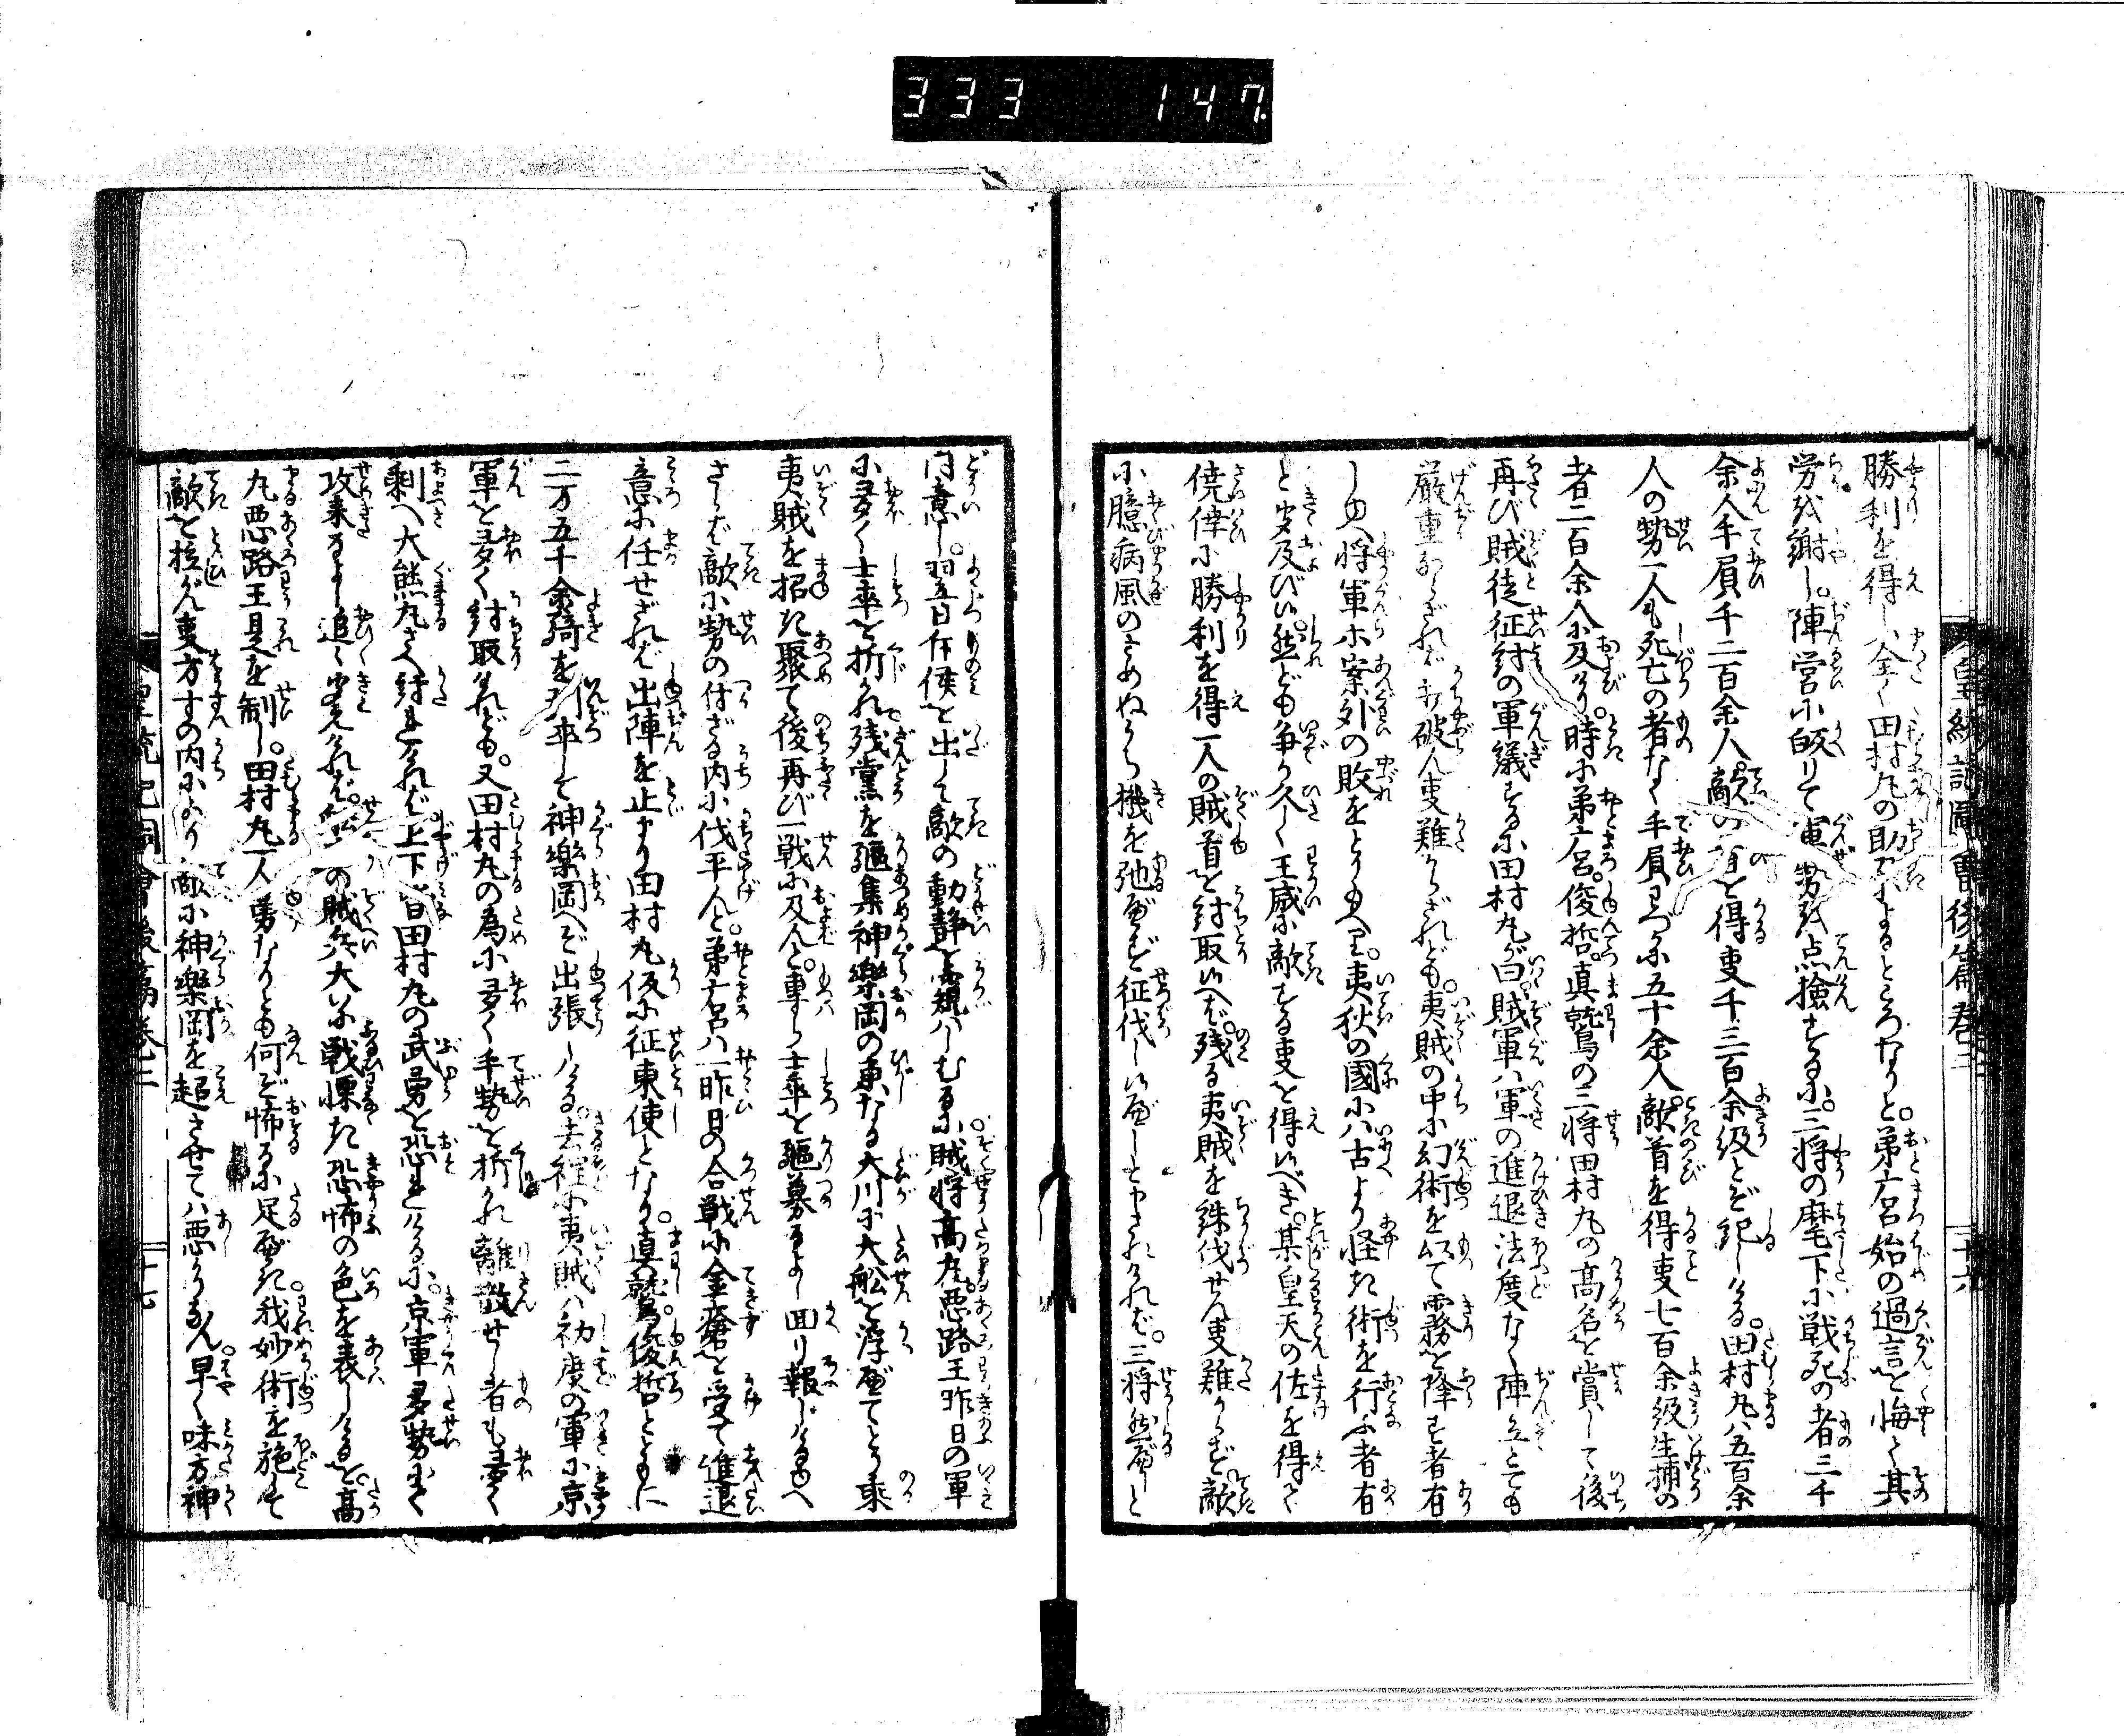 333 147
勝利を得しハ全く田村丸の助力によるところなりと。弟宮始の過言を悔て其
労を謝し。陣営に皈りて軍勢を点撿するに。三将の麾下に戦死の者三千
余人手負千二百余人。敵の首を得事千三百余級とぞ記しける。田村丸ハ五百余
人の勢一人も死亡の者なく手負わづか五十余人。敵首を得事七百余級生捕の
者二百余人に及べり。時に弟宮。俊哲。真鷲の三将田村丸の高名を賞して後
再び賊徒征討の軍議するに田村丸が曰賊軍ハ軍の進退法度なく陣立とても
厳重ならざれば打破ん事難からざれども。夷賊の中に幻術を以て霧を降す者有
しゆへ将軍等案外の敗をとり給へり。夷狄の國にハ古より怪き術を行ふ者有
と聞及び候。然ども争か久しく王威に敵する事を得候べき。某皇天の佐を得て
僥倖に勝利を得一人の賊首を討取候へば。残る夷賊を誅伐せん事難からず。敵
に臆病風のさめぬうち機を弛べず征伐し候べしと申されければ。三将然べしと
皇統記圖會後篇巻二
二十六
同意し。翌日斥候を出して敵の動静を窺ハしむるに。賊将高丸悪路王昨日の軍
に多く士卒を折かれ。残黨を駈集神樂岡の東なる大川に大舩を浮べてとり乗
夷賊を招き聚て後再び一戦に及んと。専ら士卒を駈募るよし回り報じけるゆへ
さらバ敵に勢の付ざる内に伐平んと。弟宮ハ一昨日の合戦に金瘡を受て進退
意に任せざれバ出陣を止まり田村丸仮に征東使となり。真鷲。俊哲とともに
二万五千余騎を引率して神樂岡へぞ出張しける。去程に夷賊ハ初度の軍に京
軍を多く討取けれども。又田村丸の為に多く手勢を折かれ離散せし者も多く
剰へ大熊丸さへ討れけれバ。上下皆田村丸の武勇を恐れけるに。京軍多勢にて
攻来るよし追々聞えけれバ。の賊兵大いに戦慄き恐怖の色を表しけるを。高
丸悪路王是を制し。田村丸一人勇なりとも何ぞ怖るに足べき。我妙術を施して
敵を拉がん事方寸の内にあり。敵に神樂岡を超させてハ悪かりなん。早く味方神
皇統記圖會後篇巻二
二十七